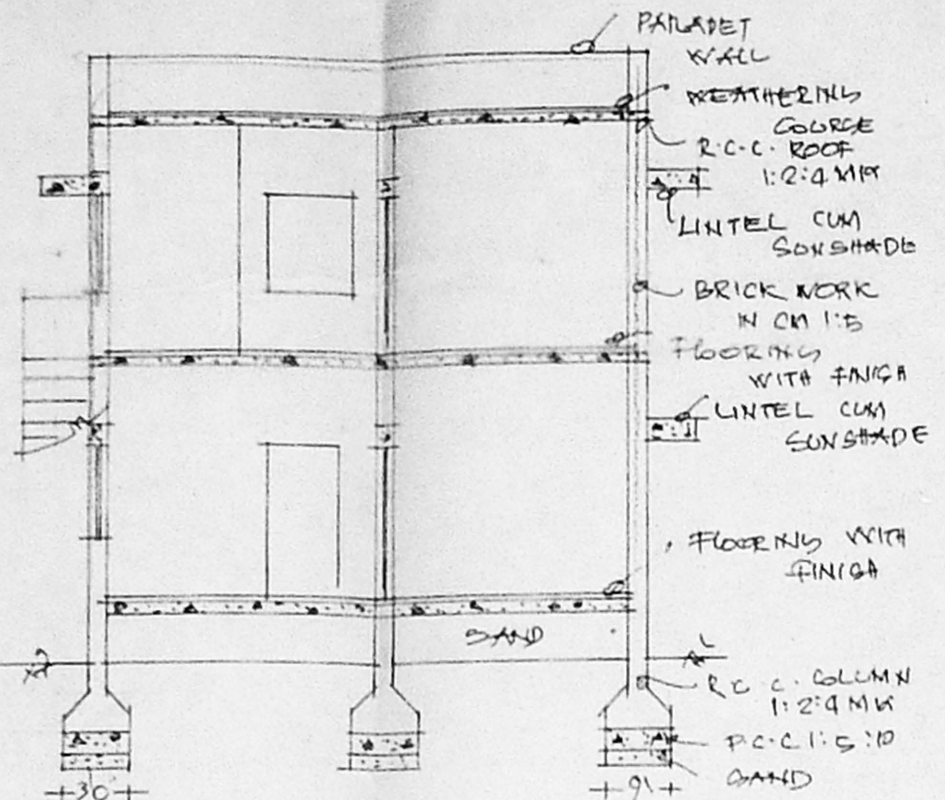 PARAPET
WALL
WEATHERING
COURSE
R.C.C. ROOF
1:2:4 MIX
LINTEL CUM
SUNSHADE
BRICK WORK
IN CM 1:5
FLOORING
WITH FINISH
LINTEL CUM
SUNSHADE
FLOORING WITH
FINISH
SAND
R.C.C. COLUMN
1:2:4 MIX
P.C.C 1:5:10
SAND
30
91